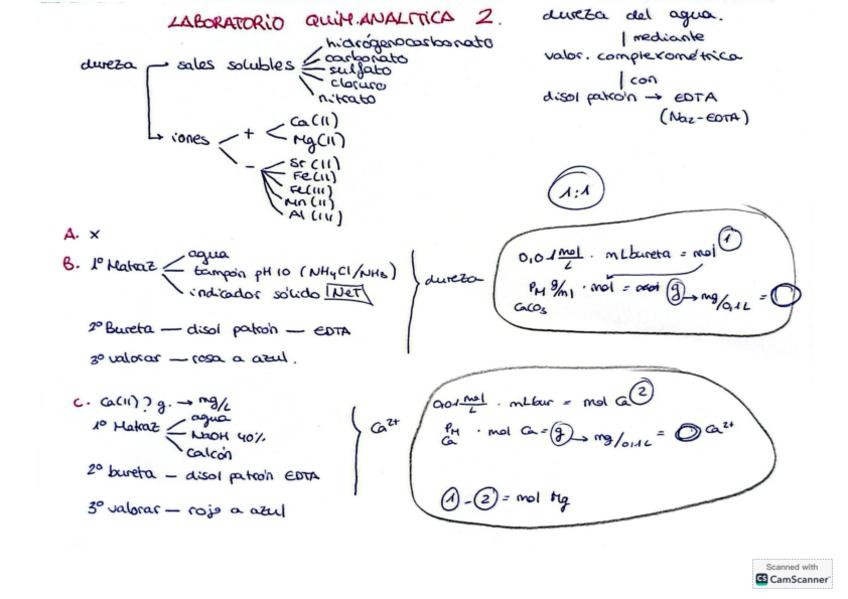 LABORATORIO QUIM.ANALITICA 2.
dureza del agua.
mediante
valor. complexométrica
con
disol patrón → EDTA
(Na2-EDTA)
dureza → sales solubles
hidrógenocarbonato
carbonato
sulfato
cloruro
nitrato
→ iones
+
Ca(II)
Mg(II)
-
Sr(II)
Fe(II)
Fe(III)
Mn(II)
Al(III)
1:1
A. x
B. 1º Matraz
agua
tampón pH 10 (NH4Cl/NH3)
indicador sólido NET
2º Bureta — disol patrón — EDTA
3º valorar — rosa a azul.
dureza
0,01 mol/L · mLbureta = mol 1
PM g/ml · mol = g → mg/0,1L =
CaCO3
C. Ca(II)? g. → mg/L
1º Matraz
agua
NaOH 40%
calcón
2º bureta — disol patrón EDTA
3º valorar — rojo a azul
Ca2+
0,01 mol/L · mLbur = mol Ca 2
PM Ca · mol Ca = g → mg/0,1L = Ca2+
1 - 2 = mol Mg
Scanned with
CS CamScanner